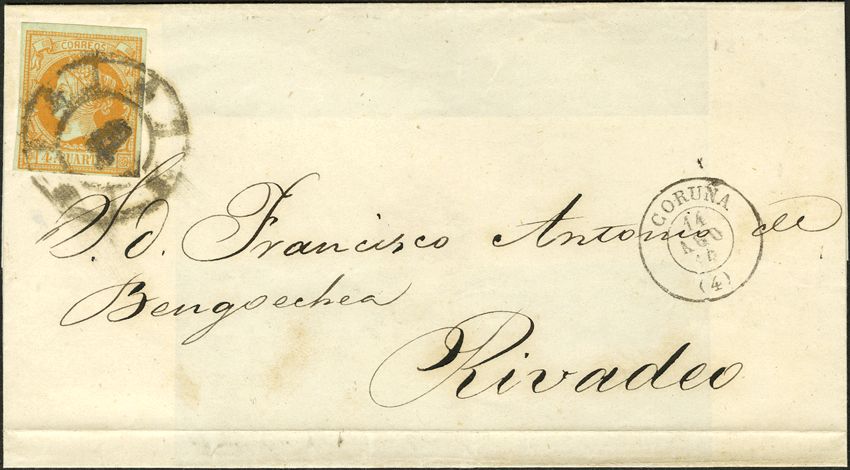 CORREOS
4 CUARTOS
S. d. Francisco Antonio de
Bengoechea
Rivadeo
CORUÑA
14
AGO
(4)